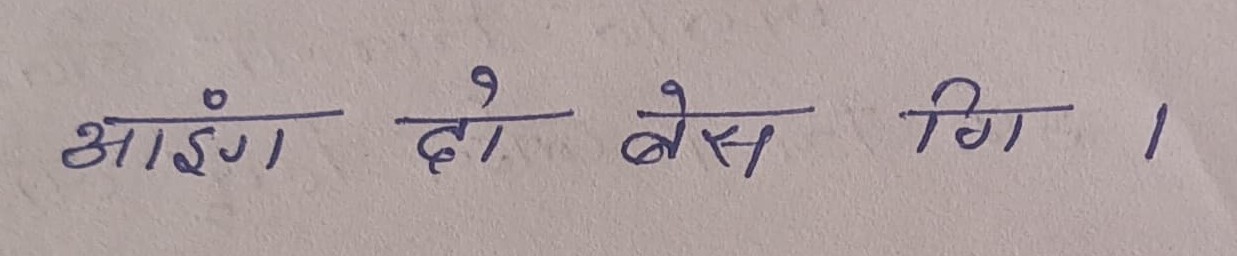 आइंग दो बेस गि ।